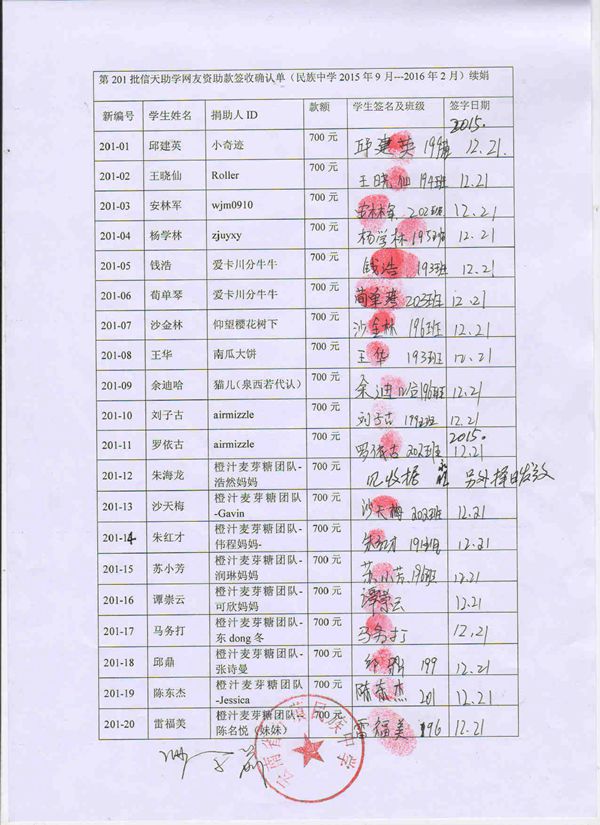 第 201 批信天助学网友资助款签收确认单（民族中学 2015 年 9 月---2016 年 2 月）续娟
新编号 学生姓名 捐助人 ID 款额 学生签名及班级 签字日期
2015.
201-01 邱建英 小奇迹 700 元 邱建英 12.21.
201-02 王晓仙 Roller 700 元 王晓仙 194班 12.21
201-03 安林军 wjm0910 700 元 安林军 202班 12.21
201-04 杨学林 zjuyxy 700 元 杨学林 195班 12.21
201-05 钱浩 爱卡川分牛牛 700 元 钱浩 193班 12.21
201-06 荀单琴 爱卡川分牛牛 700 元 荀单琴 203班 12.21
201-07 沙金林 仰望樱花树下 700 元 沙金林 196班 12.21
201-08 王华 南瓜大饼 700 元 王华 193班 12.21
201-09 余迪哈 猫儿（泉西若代认） 700 元 余迪哈 196班 12.21
201-10 刘子古 airmizzle 700 元 刘子古 12.21
2015.
201-11 罗依古 airmizzle 700 元 罗依古 202班 12.21
201-12 朱海龙 橙汁麦芽糖团队- 700 元 见收据 另外择日发放
浩然妈妈
201-13 沙天梅 橙汁麦芽糖团队 700 元 沙天梅 202班 12.21
-Gavin
201-14 朱红才 橙汁麦芽糖团队- 700 元 朱红才 12.21
伟程妈妈-
201-15 苏小芳 橙汁麦芽糖团队- 700 元 苏小芳 196班 12.21
润琳妈妈
201-16 谭崇云 橙汁麦芽糖团队- 700 元 谭崇云 12.21
可欣妈妈
201-17 马务打 橙汁麦芽糖团队- 700 元 马务打 12.21
东 dong 冬
201-18 邱鼎 橙汁麦芽糖团队- 700 元 邱鼎 199 12.21
张诗曼
201-19 陈东杰 橙汁麦芽糖团队 700 元 陈东杰 201 12.21
-Jessica
201-20 雷福美 橙汁麦芽糖团队- 700 元 雷福美 196 12.21
陈名悦（妹妹）
民族中学